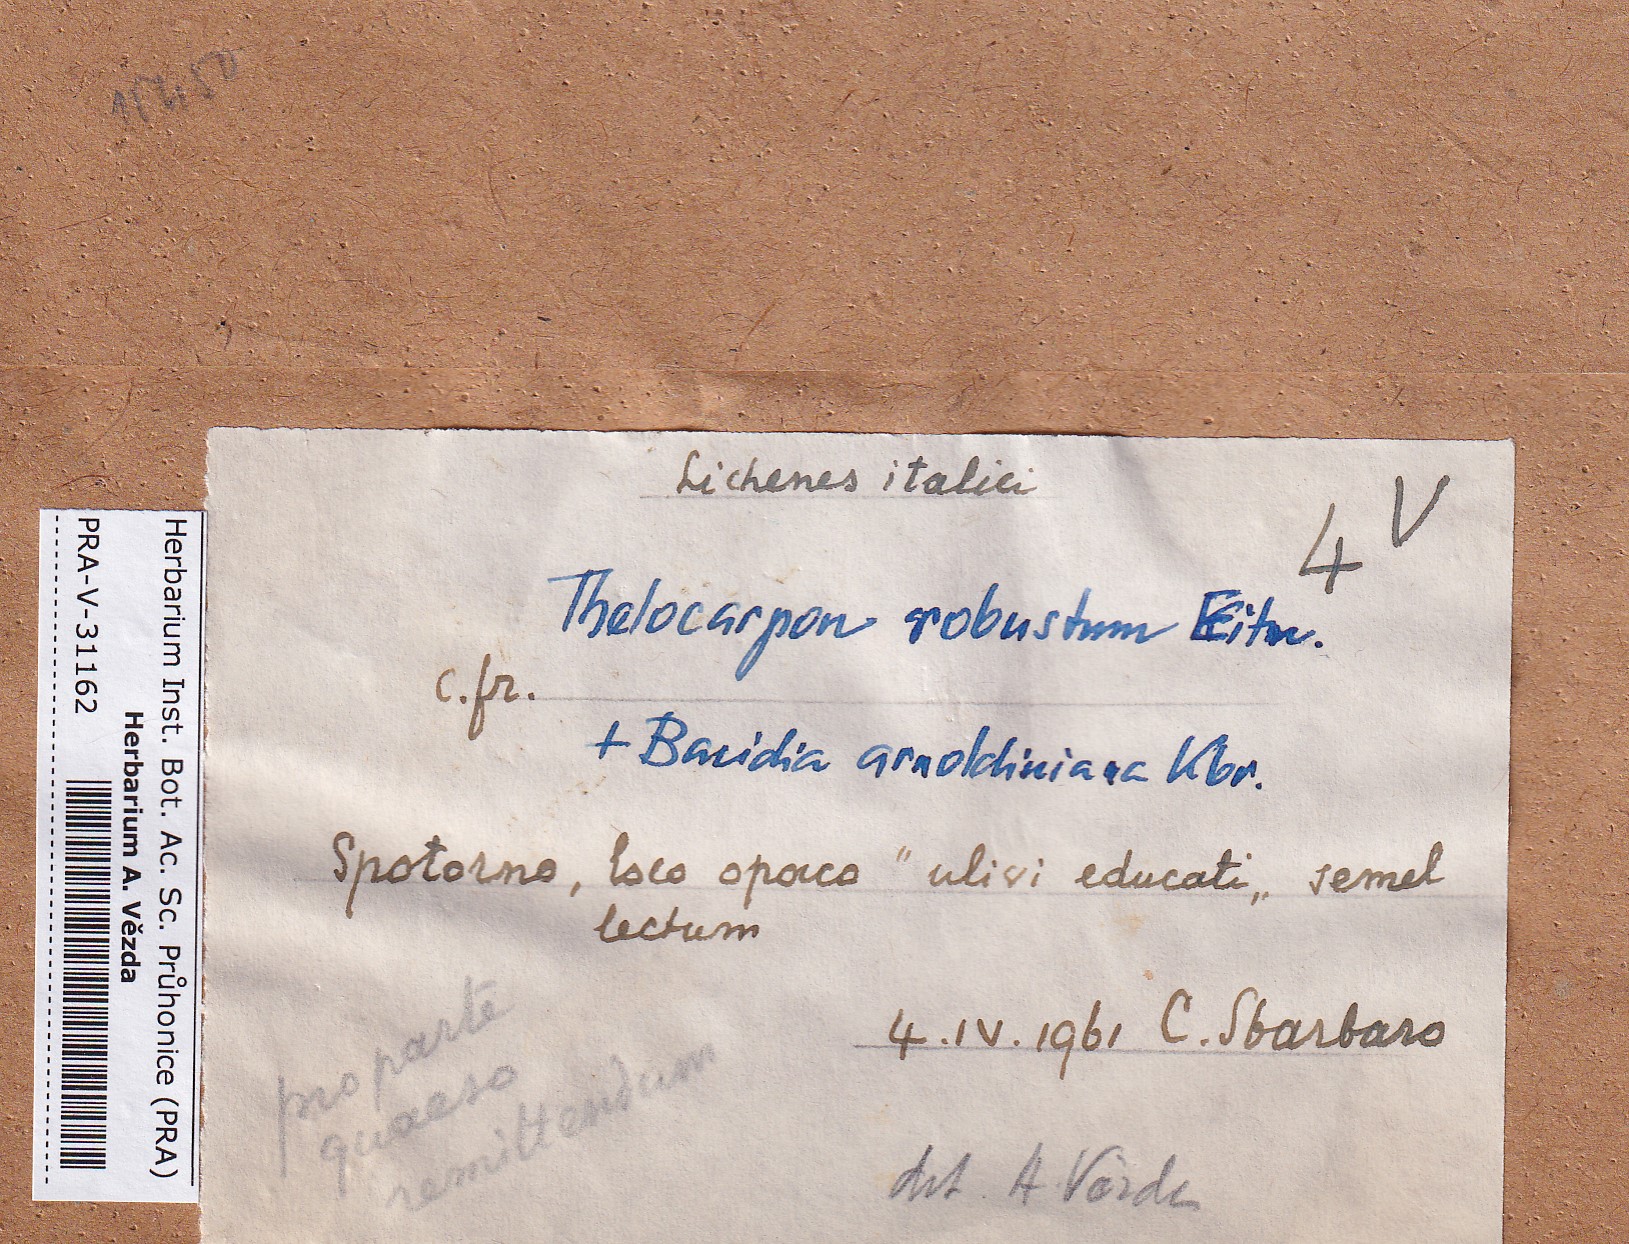 Lichenes italici
4 V
Thelocarpon robustum Eitn.
c.fr.
+ Bacidia arnoldiniana Kbr.
Spotorno, loco opaco "ulivi educati„ semel
lectum
4.IV.1961 C. Sbarbaro
pro parte
quaeso
remittendum
det. A. Vězda
Herbarium Inst. Bot. Ac. Sc. Průhonice (PRA)
Herbarium A. Vězda
PRA-V-31162